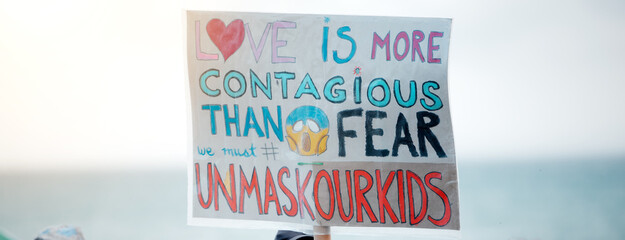 LOVE is MORE
CONTAGIOUS
THAN 😱 FEAR
we must #
UNMASKOURKIDS